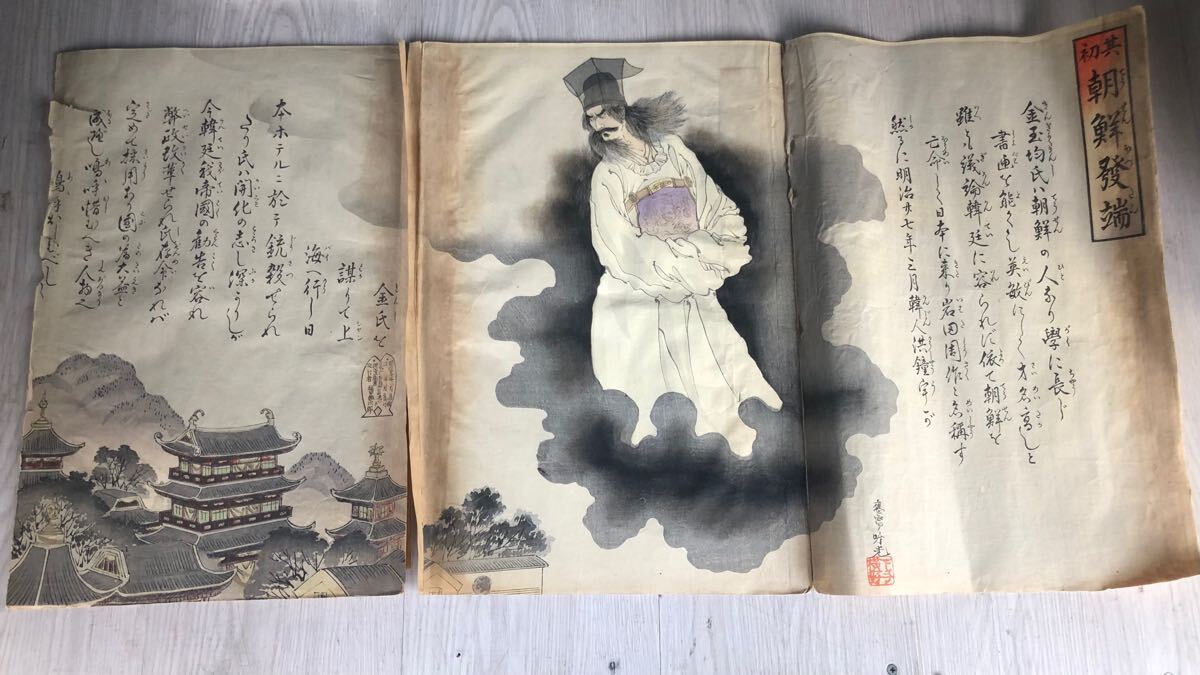 其初
朝鮮發端
金玉均氏ハ朝鮮の人なり學に長じ
書画を能くし英敏にして才名高しと
雖も議論韓廷に容られず依て朝鮮を
亡命して日本に来り岩田周作と名称す
然るに明治廿七年三月韓人洪鐘宇が
金氏を
謀りて上
海へ行し日
本ホテルニ於テ銃殺せられ
たり氏ハ開化の志し深かりしが
今韓廷我帝國の勧告を容れ
弊政改革せられ氏存命なれバ
定めて採用あり國の為大益を
嗚呼惜むべき人物